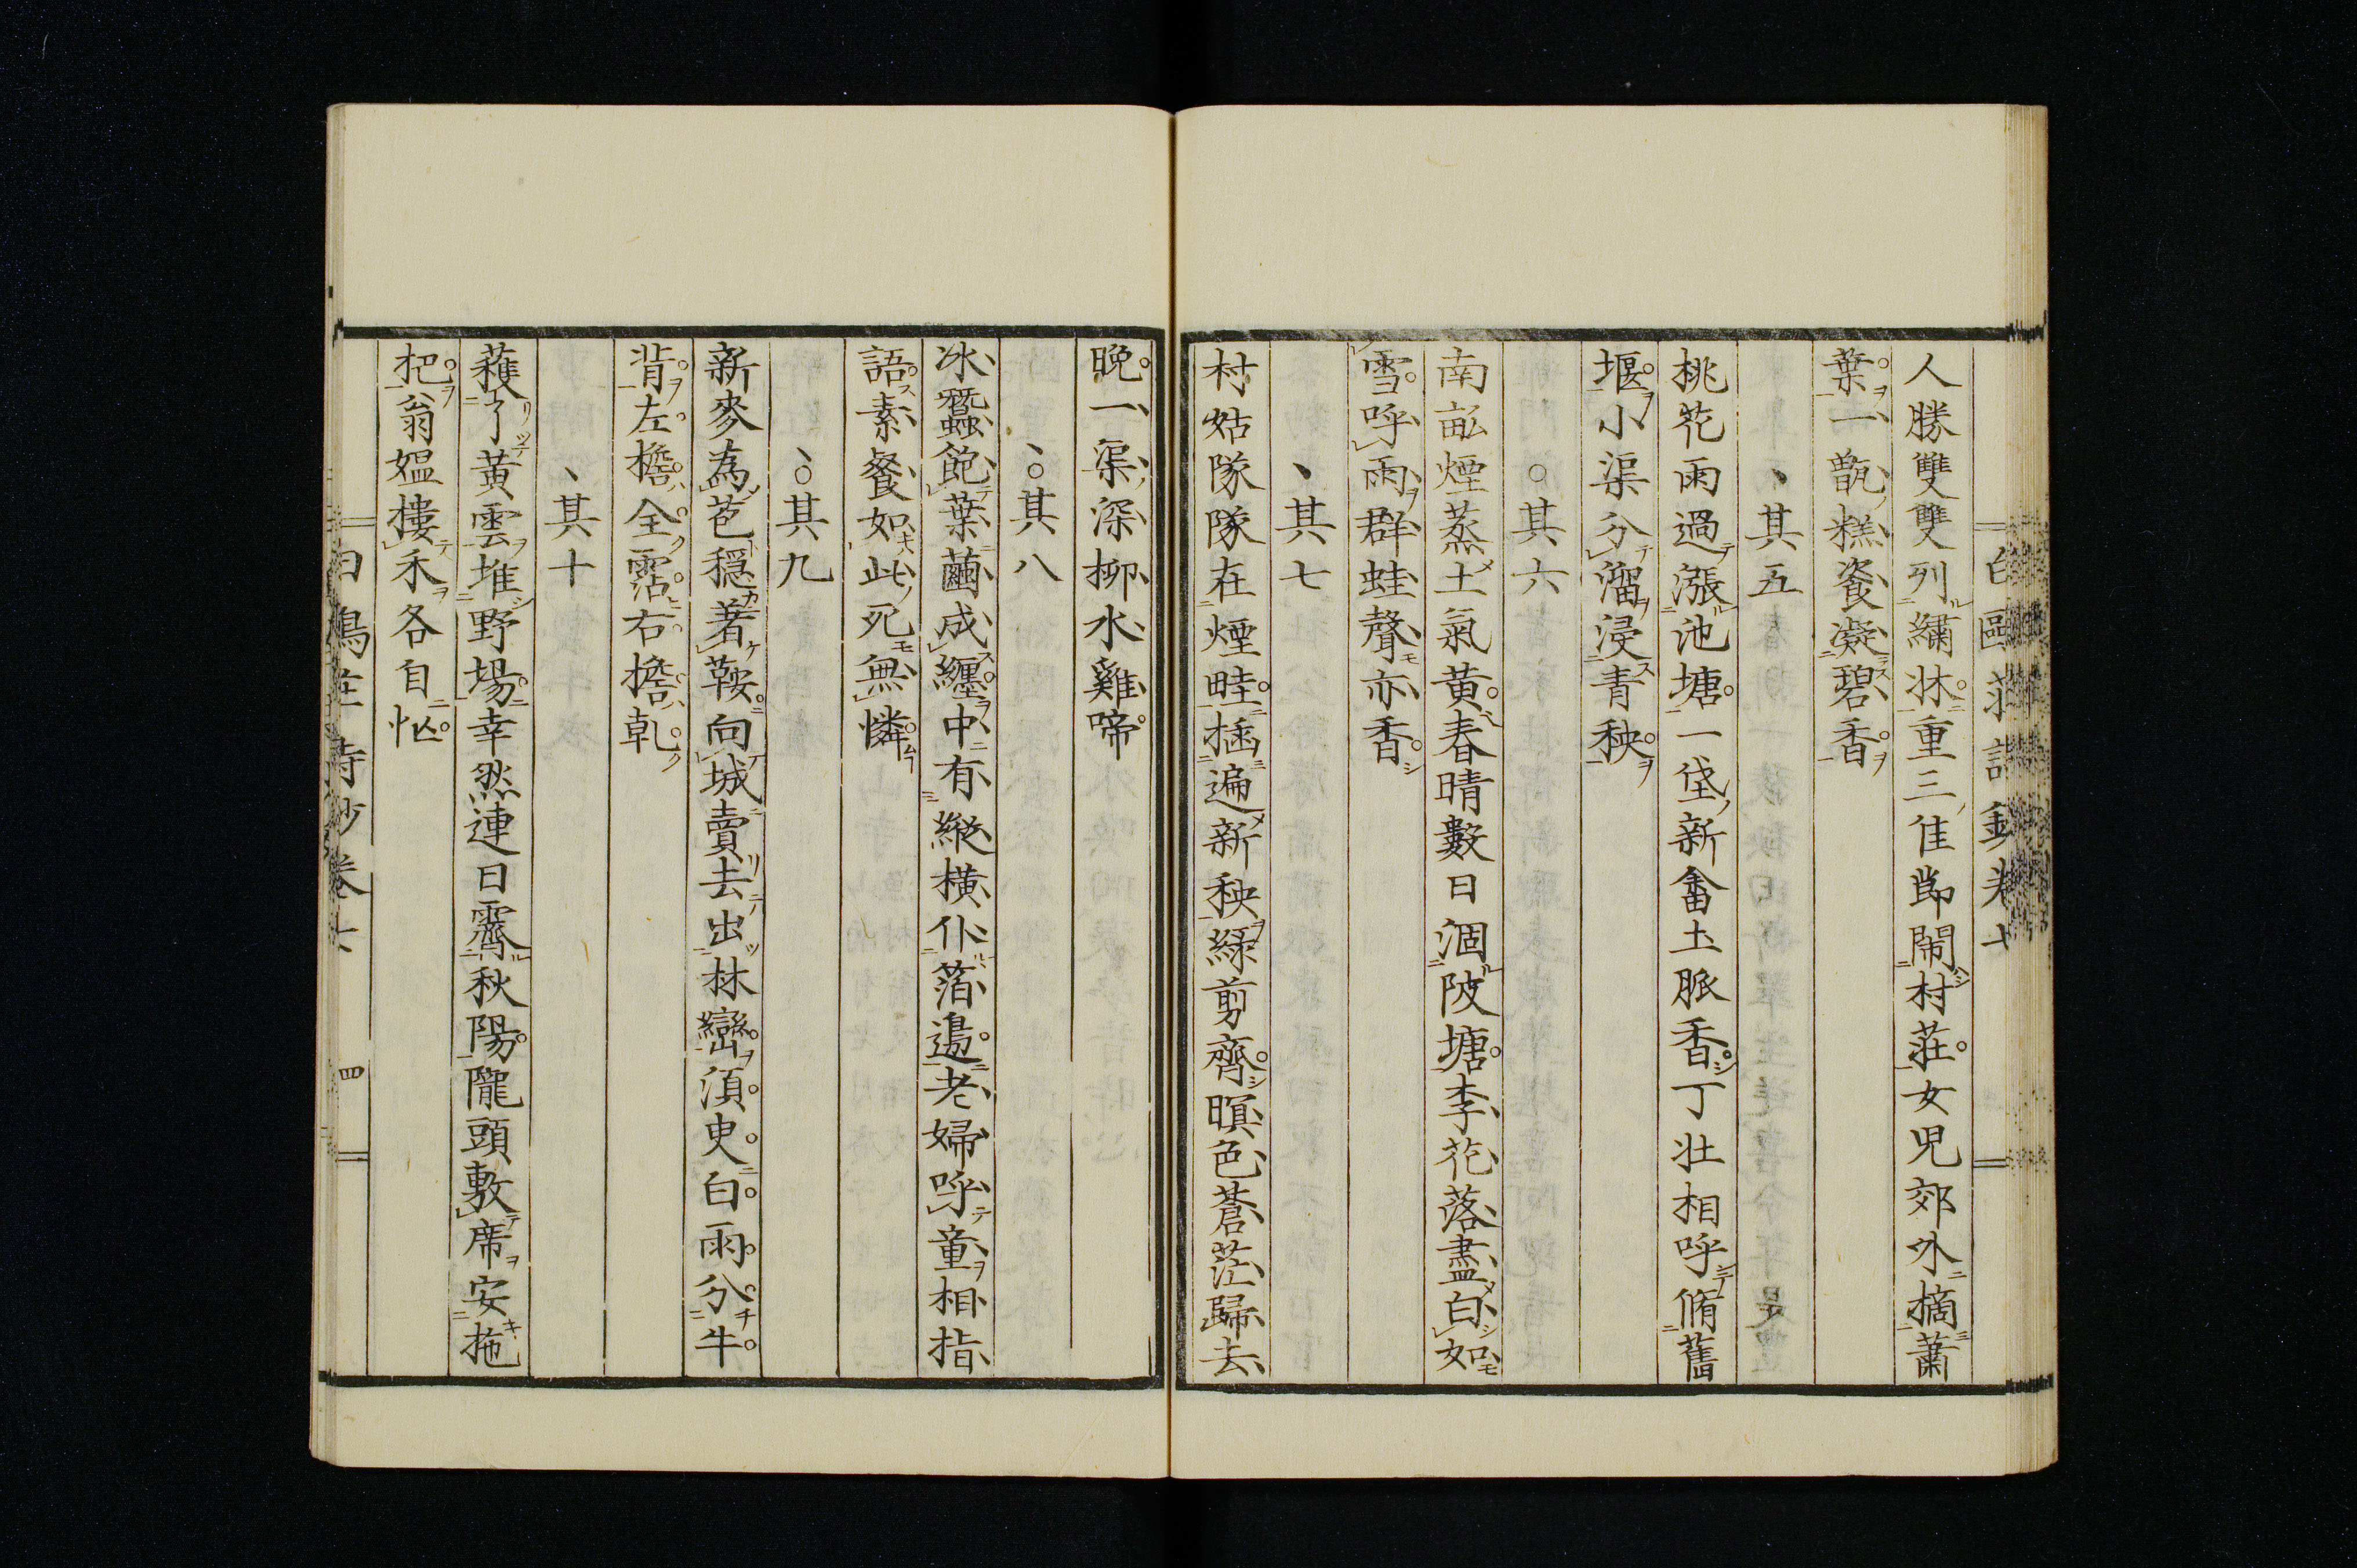 人勝雙雙列繡牀重三佳節鬧村莊女兒郊外摘蕭
葉一甑糕餈凝碧香
其五
桃花雨過漲池塘一垡新畬土脈香丁壮相呼脩舊
堰小渠分溜浸青秧
其六
南畝煙蒸土氣黄春晴數日涸陂塘李花落盡白如
雪呼雨群蛙聲亦香
其七
村姑隊隊在煙畦插遍新秧綠剪齊暝色蒼茫歸去
晩一渠深柳水雞啼
其八
冰蠶飽葉繭成纏中有縱橫仆箔邊老婦呼童相指
語素餐如此死無憐
其九
新麥為苞穩著鞍向城賣去出林巒湏臾白雨分牛
背左檐全霑右檐乾
其十
穫了黄雲堆野場幸然連日霽秋陽隴頭敷席安拖
把翁媼摟禾各自忙
白鷗莊詩鈔卷七 四